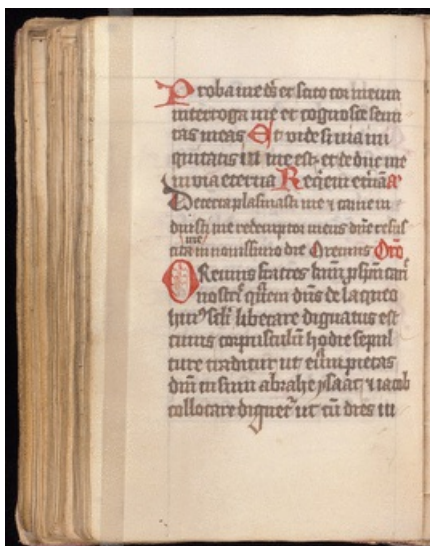 Proba me ds et scito cor meum
interroga me et cognosce semi
tas meas Et vide si via ini
quitatis in me est et deduc me
in via eterna Reqiem etnā a
De terra plasmasti me ⁊ carne in
duisti me redemptor meus dne resus
me
cita in novissimo die Oremus Orō
Oremus fratres km̄ p spm cari
nostri quem dns de laqueo
huꝰ scli liberare dignatus est
cuius corpusculū hodie sepul
ture traditur ut eum pietas
dni in sinu abrahe ysaac ⁊ iacob
collocare dignetr ut cū dies iu